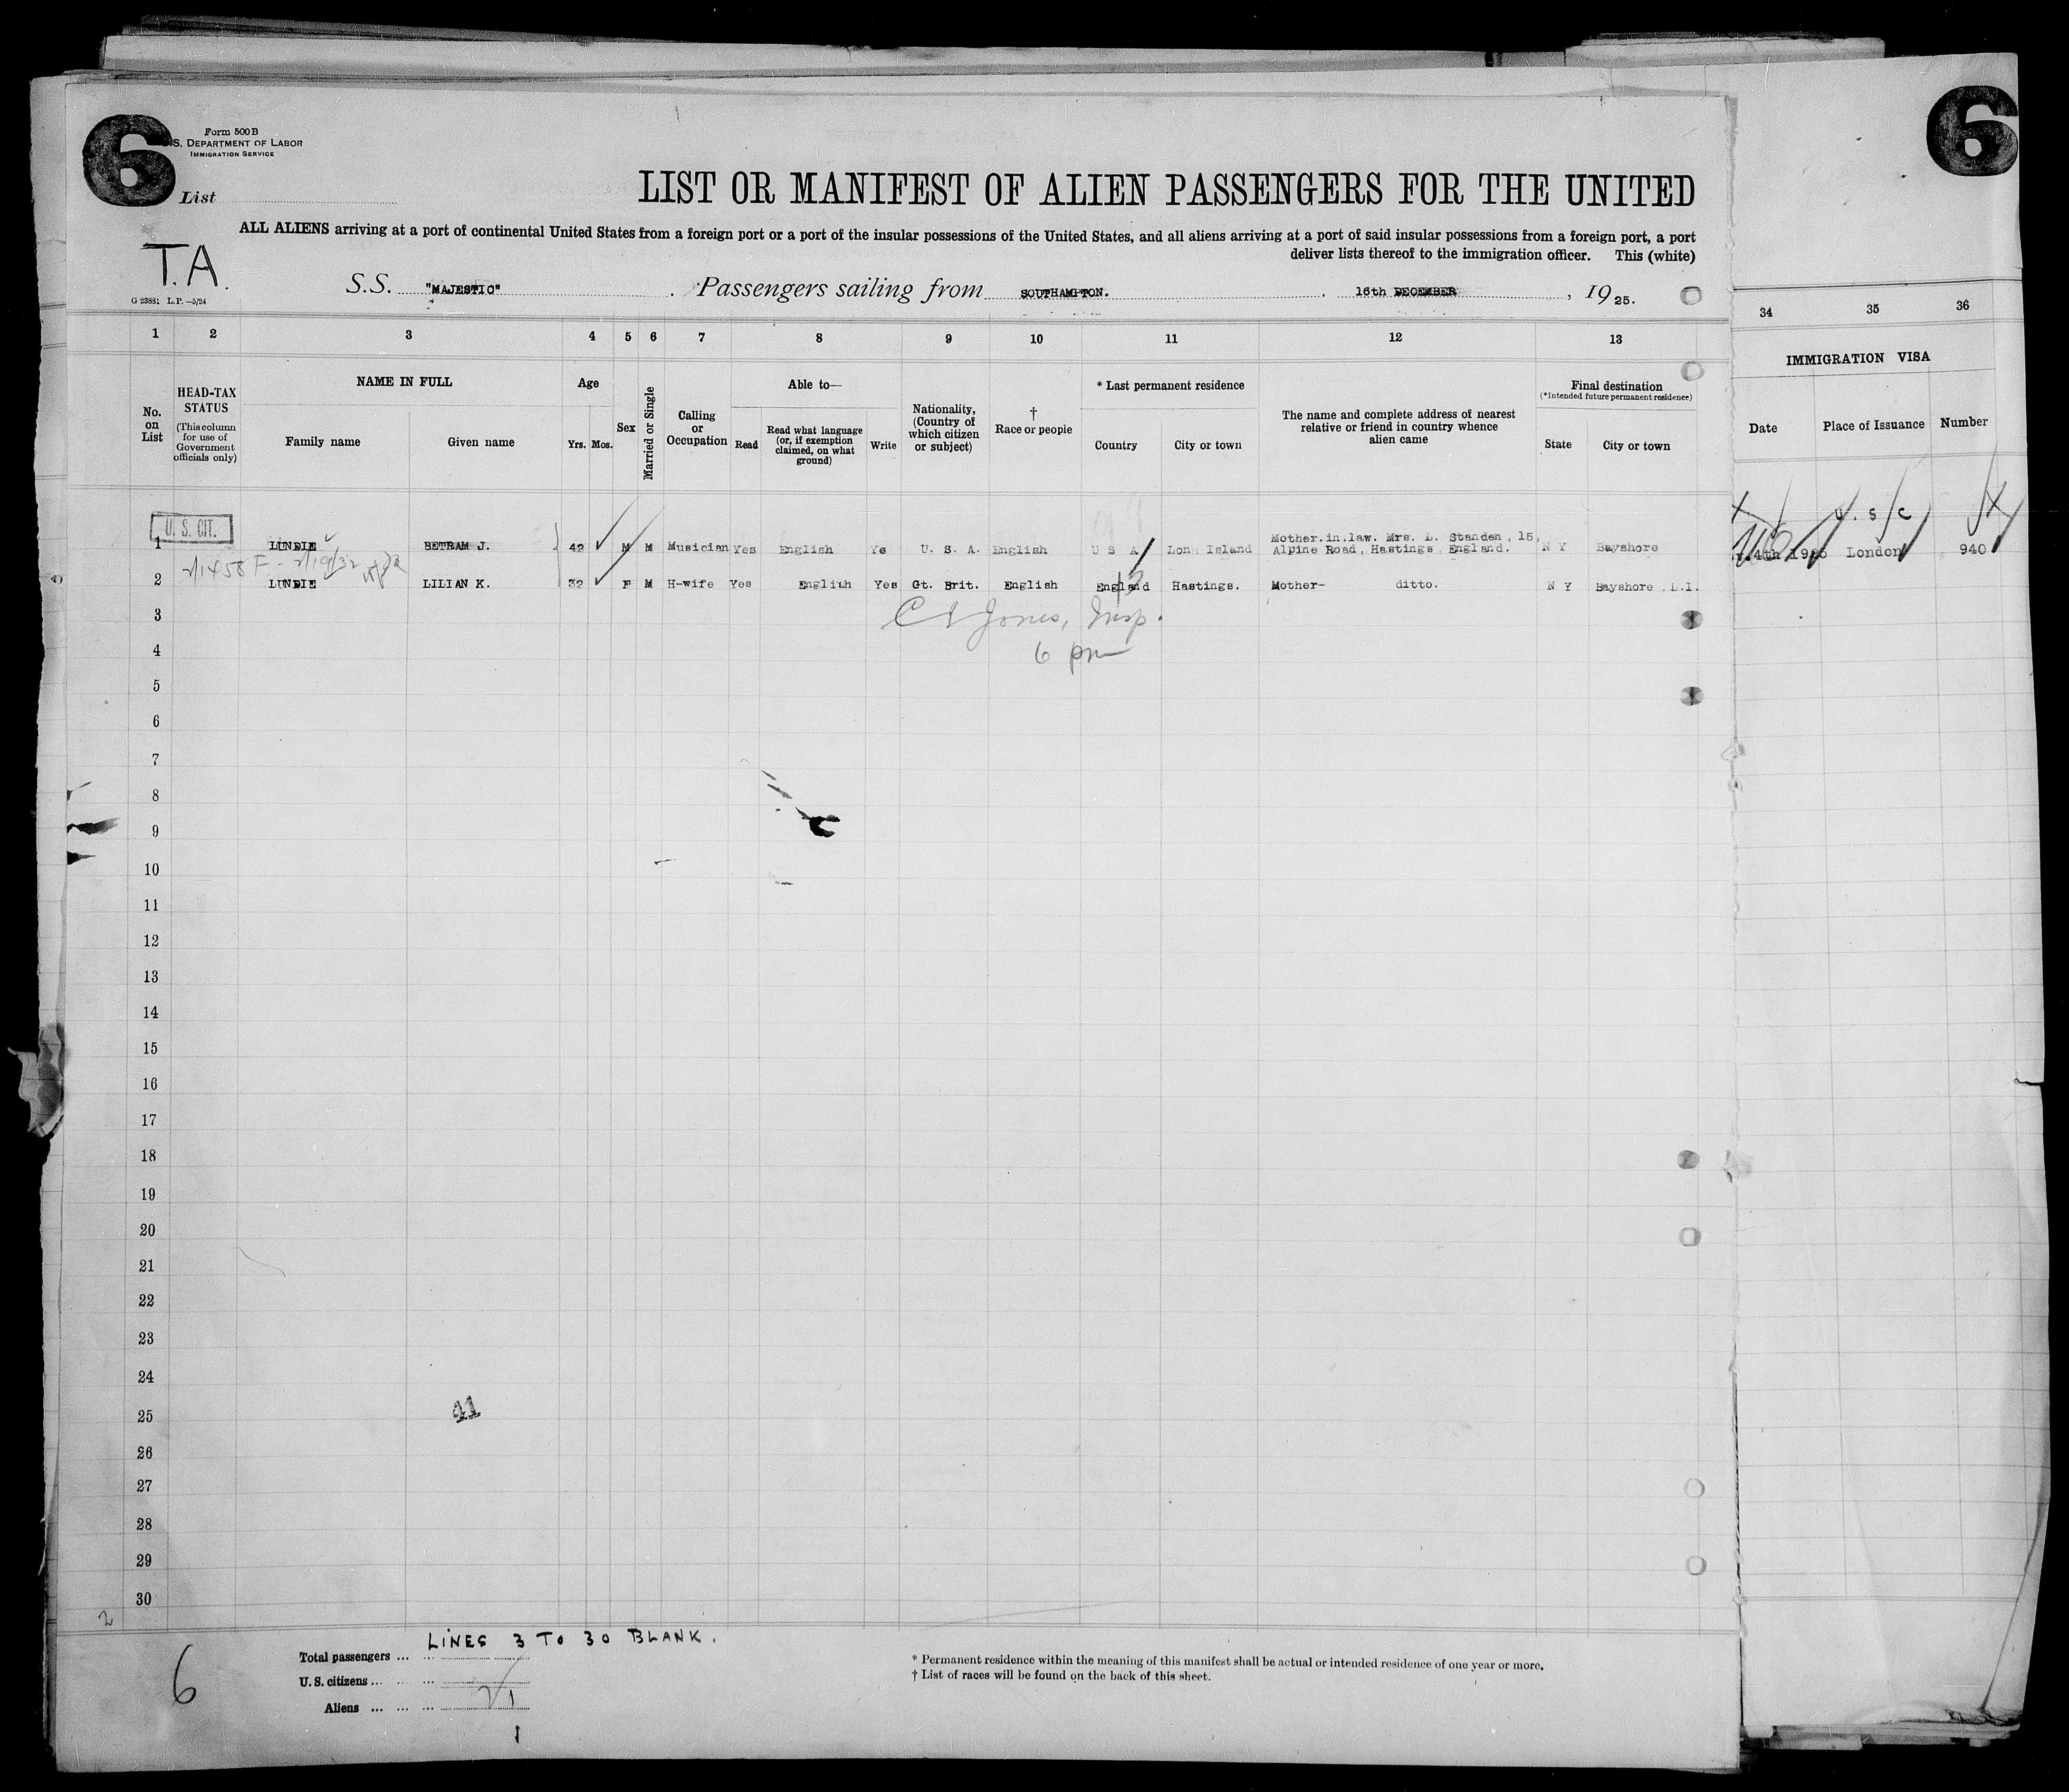 6
Form 500 B
S. DEPARTMENT OF LABOR
IMMIGRATION SERVICE
List
LIST OR MANIFEST OF ALIEN PASSENGERS FOR THE UNITED
ALL ALIENS arriving at a port of continental United States from a foreign port or a port of the insular possessions of the United States, and all aliens arriving at a port of said insular possessions from a foreign port, a port
deliver lists thereof to the immigration officer. This (white)
T.A.
G 23881 L.P.—5/24
S.S. "MAJESTIC" . Passengers sailing from SOUTHAMPTON. , 16th DECEMBER , 19 25.
6
1 2 3 4 5 6 7 8 9 10 11 12 13
34 35 36
No. on List
HEAD-TAX STATUS
(This column for use of Government officials only)
NAME IN FULL
Family name
Given name
Age
Yrs. Mos.
Sex
Married or Single
Calling or Occupation
Able to—
Read
Read what language (or, if exemption claimed, on what ground)
Write
Nationality, (Country of which citizen or subject)
† Race or people
* Last permanent residence
Country
City or town
The name and complete address of nearest relative or friend in country whence alien came
Final destination
(*Intended future permanent residence)
State
City or town
IMMIGRATION VISA
Date
Place of Issuance
Number
U. S. CIT.
U. S. C
1 LUNDIE BETRAM J. 42 M M Musician Yes English Ye U. S. A. English U S A Lon Island Mother.in.law. Mrs. L. Standen, 15, Alpine Road, Hastings England. N Y Bayshore
2/1458 F - 2/19/32
2 LUNDIE LILIAN K. 32 F M H-wife Yes English Yes Gt. Brit. English England Hastings. Mother- ditto. N Y Bayshore L.I.
4th 1925 London 940
3
C Jones, Insp.
4
6 pm
5
6
7
8
9
10
11
12
13
14
15
16
17
18
19
20
21
22
23
24
25
41
26
27
28
29
30
2
LINES 3 TO 30 BLANK.
6
Total passengers ... ...
U. S. citizens ... ... ...
Aliens ... ... ... 1
1
* Permanent residence within the meaning of this manifest shall be actual or intended residence of one year or more.
† List of races will be found on the back of this sheet.